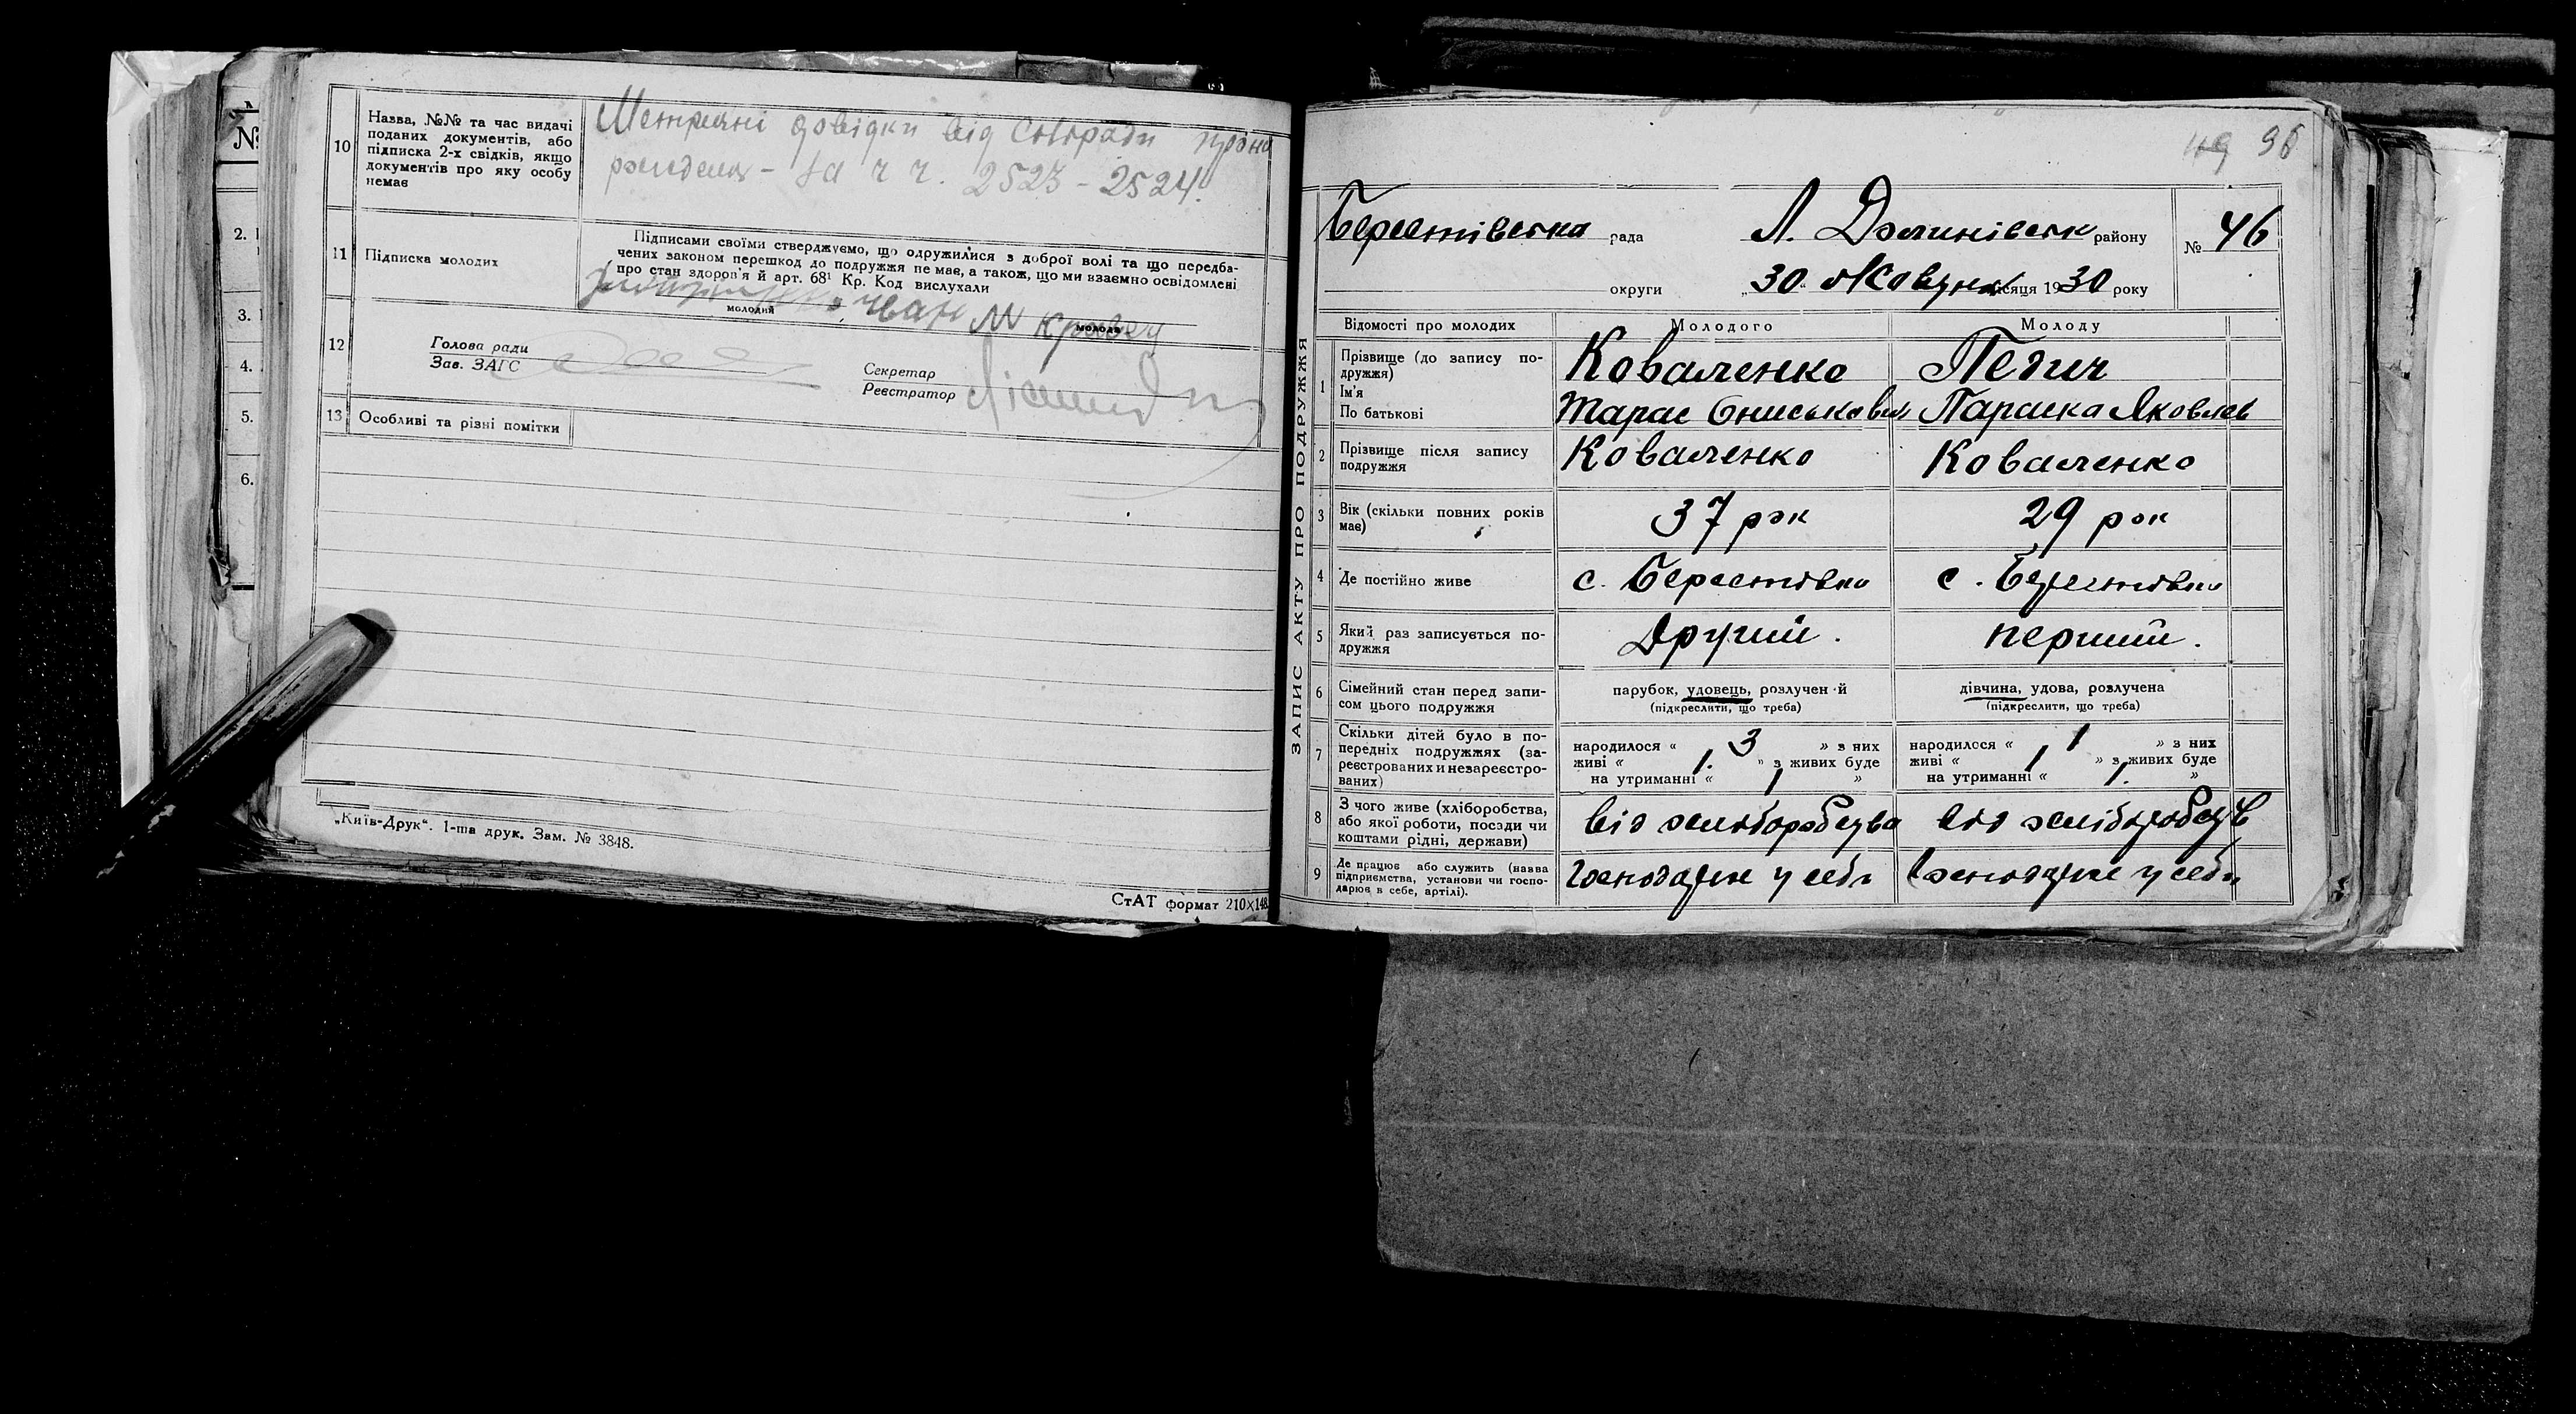 №
2.
3.
4.
5.
6.
10
Назва, №№ та час видачі
поданих документів, або
підписка 2-х свідків, якщо
документів про яку особу
немає
Метричні довідки від
за ч ч. 2523 - 2524.
11
Підписка молодих
Підписами своїми стверджуємо, що одружилися з доброї волі та що передба-
чених законом перешкод до подружжя не має, а також, що ми взаємно освідомлені
про стан здоров'я й арт. 68¹ Кр. Код вислухали
Іван М Кравец
молодий
молода
12
Голова ради
Зав. ЗАГС
Секретар
Реєстратор
13
Особливі та різні помітки
„Київ-Друк“. 1-ша друк. Зам. № 3848.
СтАТ формат 210×148.
ЗАПИС АКТУ ПРО ПОДРУЖЖЯ
49 96
Берестівська рада Л. Долинівськ району № 46
округи „30 Жовтня місяця 1930 року
Відомості про молодих Молодого Молоду
1
Прізвище (до запису по-
дружжя)
Коваленко Педич
Ім'я
По батькові
ТарасОниськович Параска Яковлев
2
Прізвище після запису
подружжя
Коваленко Коваленко
3
Вік (скільки повних років
має)
37 рок 29 рок
4
Де постійно живе
с. Берестовка с. Берестовка
5
Який раз записується по-
дружжя
Другий. перший.
6
Сімейний стан перед запи-
сом цього подружжя
парубок, удовець, розлучений
(підкреслити, що треба)
дівчина, удова, розлучена
(підкреслити, що треба)
7
Скільки дітей було в по-
передніх подружжях (за-
реєстрованих и незареєстро-
ваних)
народилося « 3 » з них
живі « 1. » з живих буде
на утриманні « 1 »
народилося « 1 » з них
живі « 1 » з живих буде
на утриманні « 1. »
8
З чого живе (хліборобства,
або якої роботи, посади чи
коштами рідні, держави)
від хліборобства від хліборобств
9
Де працює або служить (назва
підприємства, установи чи госпо-
дарює в себе, артілі).
Господарює у себе Господарює у себе